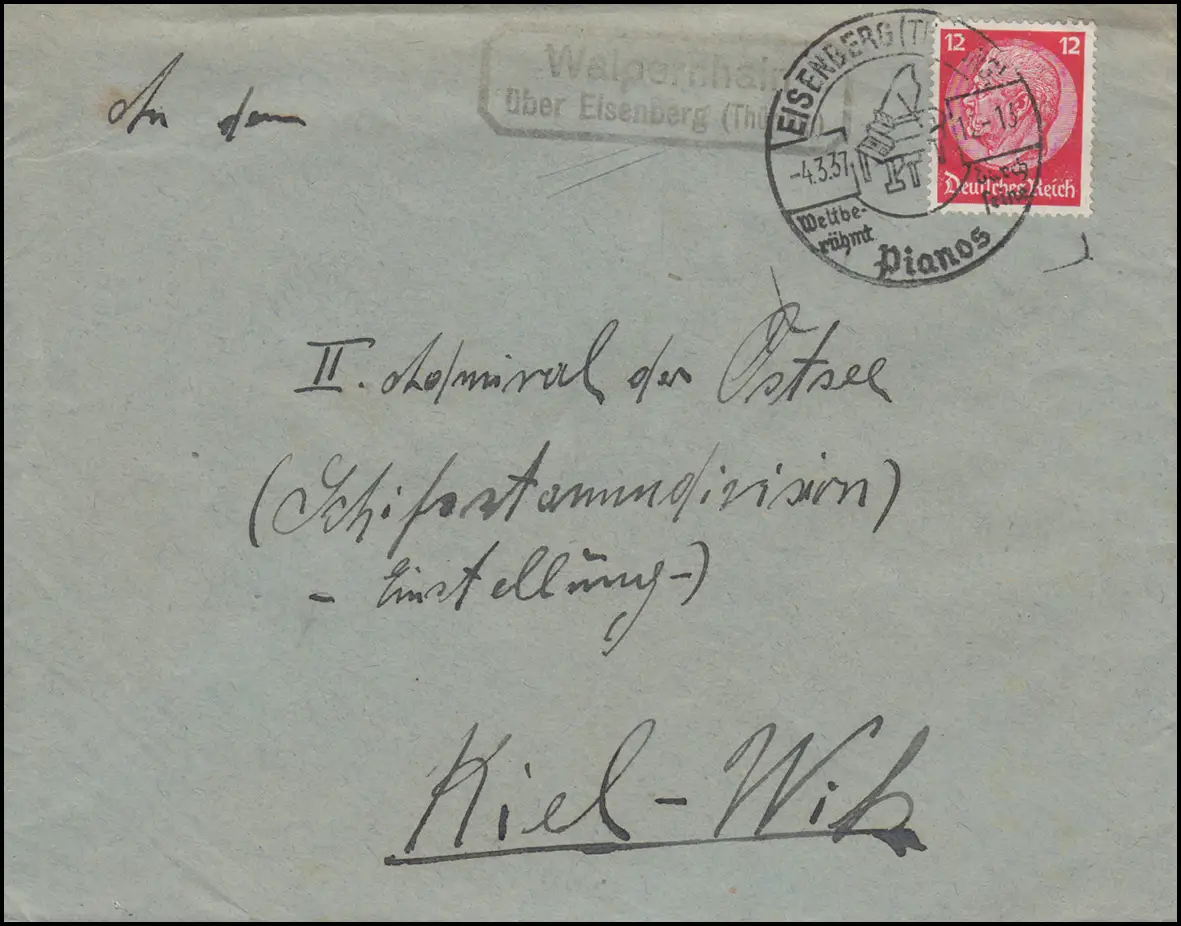 An den
Walpernhain
über Eisenberg (Thür.)
EISENBERG (THÜRING)
-4.3.37
12-13
Weltbe-
rühmt
durch
feine
Pianos
12 12
Deutsches Reich
II. Admiral der Ostsee
(Schifsstammdivision)
- Einstellung -)
Kiel - Wik